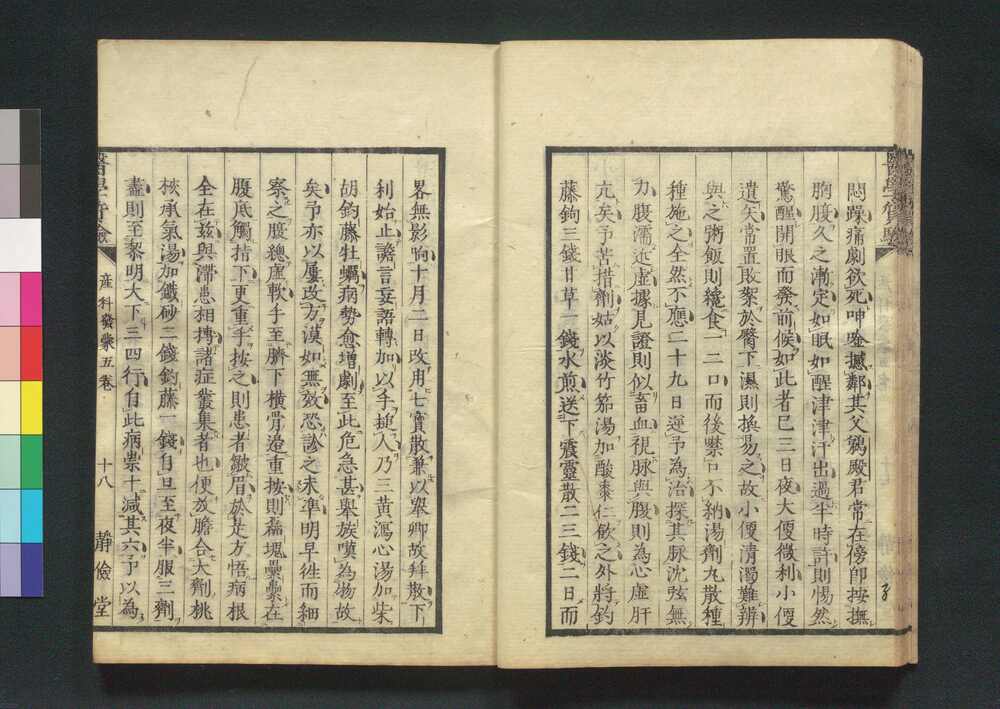 悶躁痛劇欲死呻唫撼鄰其父鶉殿君常在傍即按撫
胸腹久之漸定如眠如醒津津汗出過半時許則惕然
驚醒開眼而發前候如此者已三日夜大便微利小便
遺矢常置敗絮於臀下濕則換易之故小便清濁難辨
與之粥飯則纔食一二口而後禁口不納湯劑丸散種
種施之全然不應二十九日迎予為治探其脉沈弦無
力腹濡近虛據見證則似畜血視脉與腹則為心虛肝
亢矣予苦措劑姑以淡竹筎湯加酸棗仁飲之外將鈞
藤鉤三錢甘草一錢水煎送下震靈散二三錢二日而
界無影响十月二日改用七寶散兼以舉卿故拜散下
利始止譫言妄語轉加以手搥人乃三黃瀉心湯加柴
胡鈞藤牡蠣病勢愈增劇至此危急甚舉族嘆為物故
矣予亦以屢攻方漠如無效恐診之未準明早徃而細
察之腹總虛軟手至臍下橫骨邊重按則磊塊疊纍在
腹底觸指下更重手按之則患者皺眉於是方悟病根
全在茲與滯患相摶諸症叢集者也便放膽合大劑桃
核承氣湯加鐵砂二錢鈞藤一錢自旦至夜半服三劑
盡則至黎明大下三四行自此病祟十減其六予以為
産科發蒙五卷
十八
靜儉堂